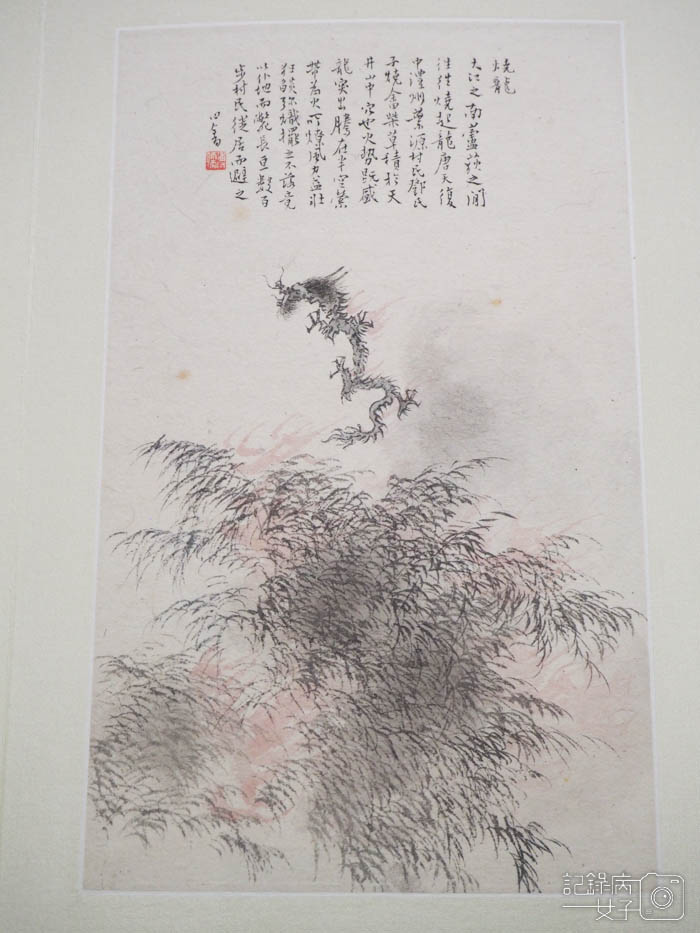 燒龍
大江之南蘆荻之間
往往燒起龍唐天復
中澧州葉源村民鄧氏
子燒畬柴草積於天
井山中穴也火勢既盛
龍突出騰在半空縈
帶為火所燎風力益壯
狂焰弥熾擺之不落竟
以仆地而斃長亘數百
步村民徙居而避之
心畬
記錄病
女子